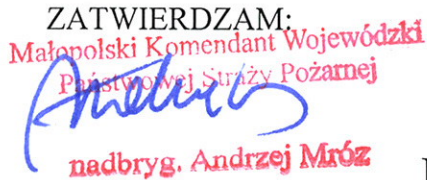 ZATWIERDZAM:
Małopolski Komendant Wojewódzki
Państwowej Straży Pożarnej
nadbryg. Andrzej Mróz